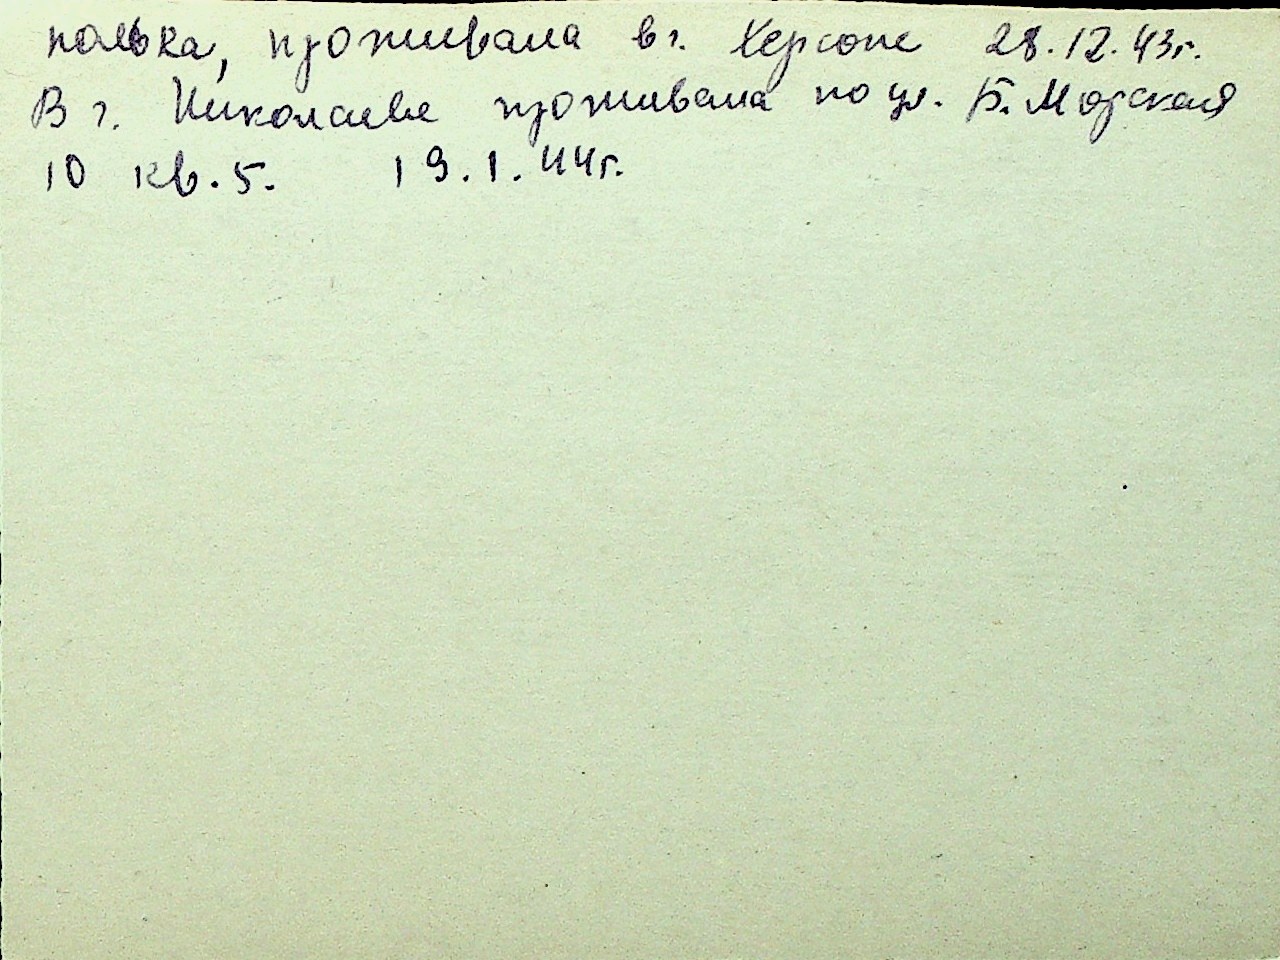 полька, проживала в г. Херсоне 28.12.43г.
В г. Николаеве проживала по ул. Б. Морская
10 кв. 5. 19.1.44г.